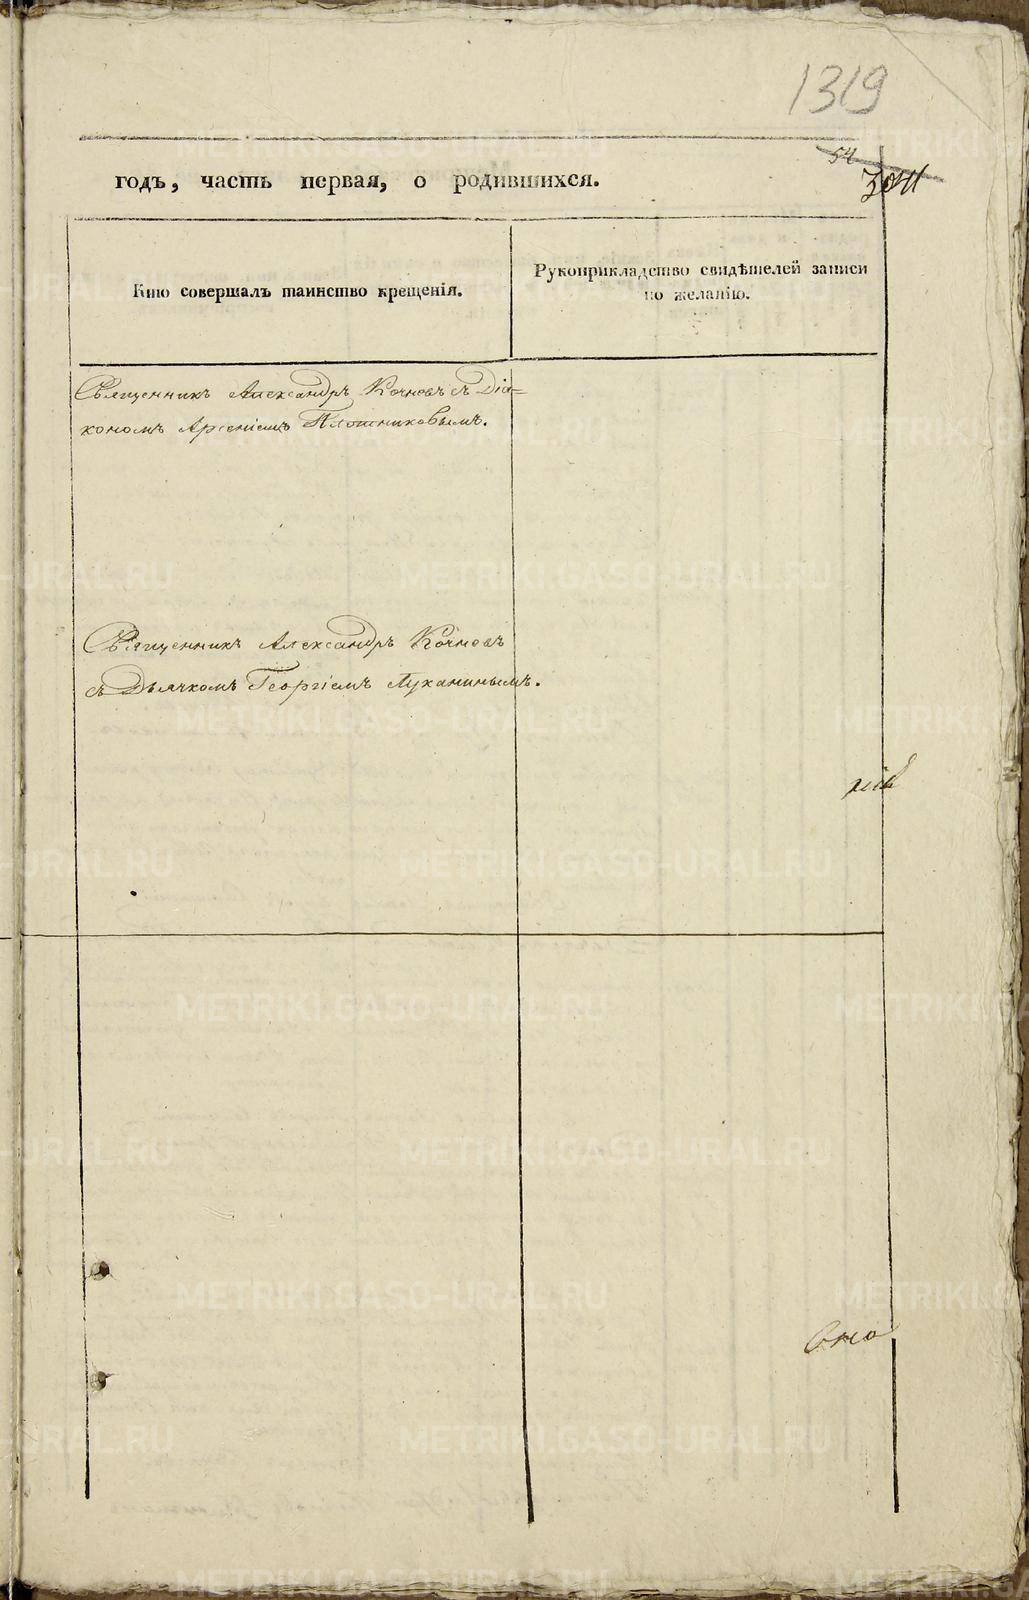 1319
54
годъ, часть первая, о родившихся.
Кто совершалъ таинство крещенія.
Рукоприкладство свидѣтелей записи
по желанію.
Священникъ Александръ Кочневъ съ Діа-
кономъ Арсеніемъ Плотниковымъ.
Священникъ Александръ Кочневъ
съ Дьячкомъ Георгіемъ Луканинымъ.
METRIKI.GASO-URAL.RU